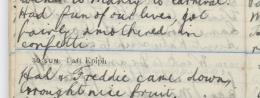 to carnival.
Had fun of our lives, got
fairly smothered in
confetti
30 SUN. Epiph
Hal & Freddie came down,
brought nice fruit.